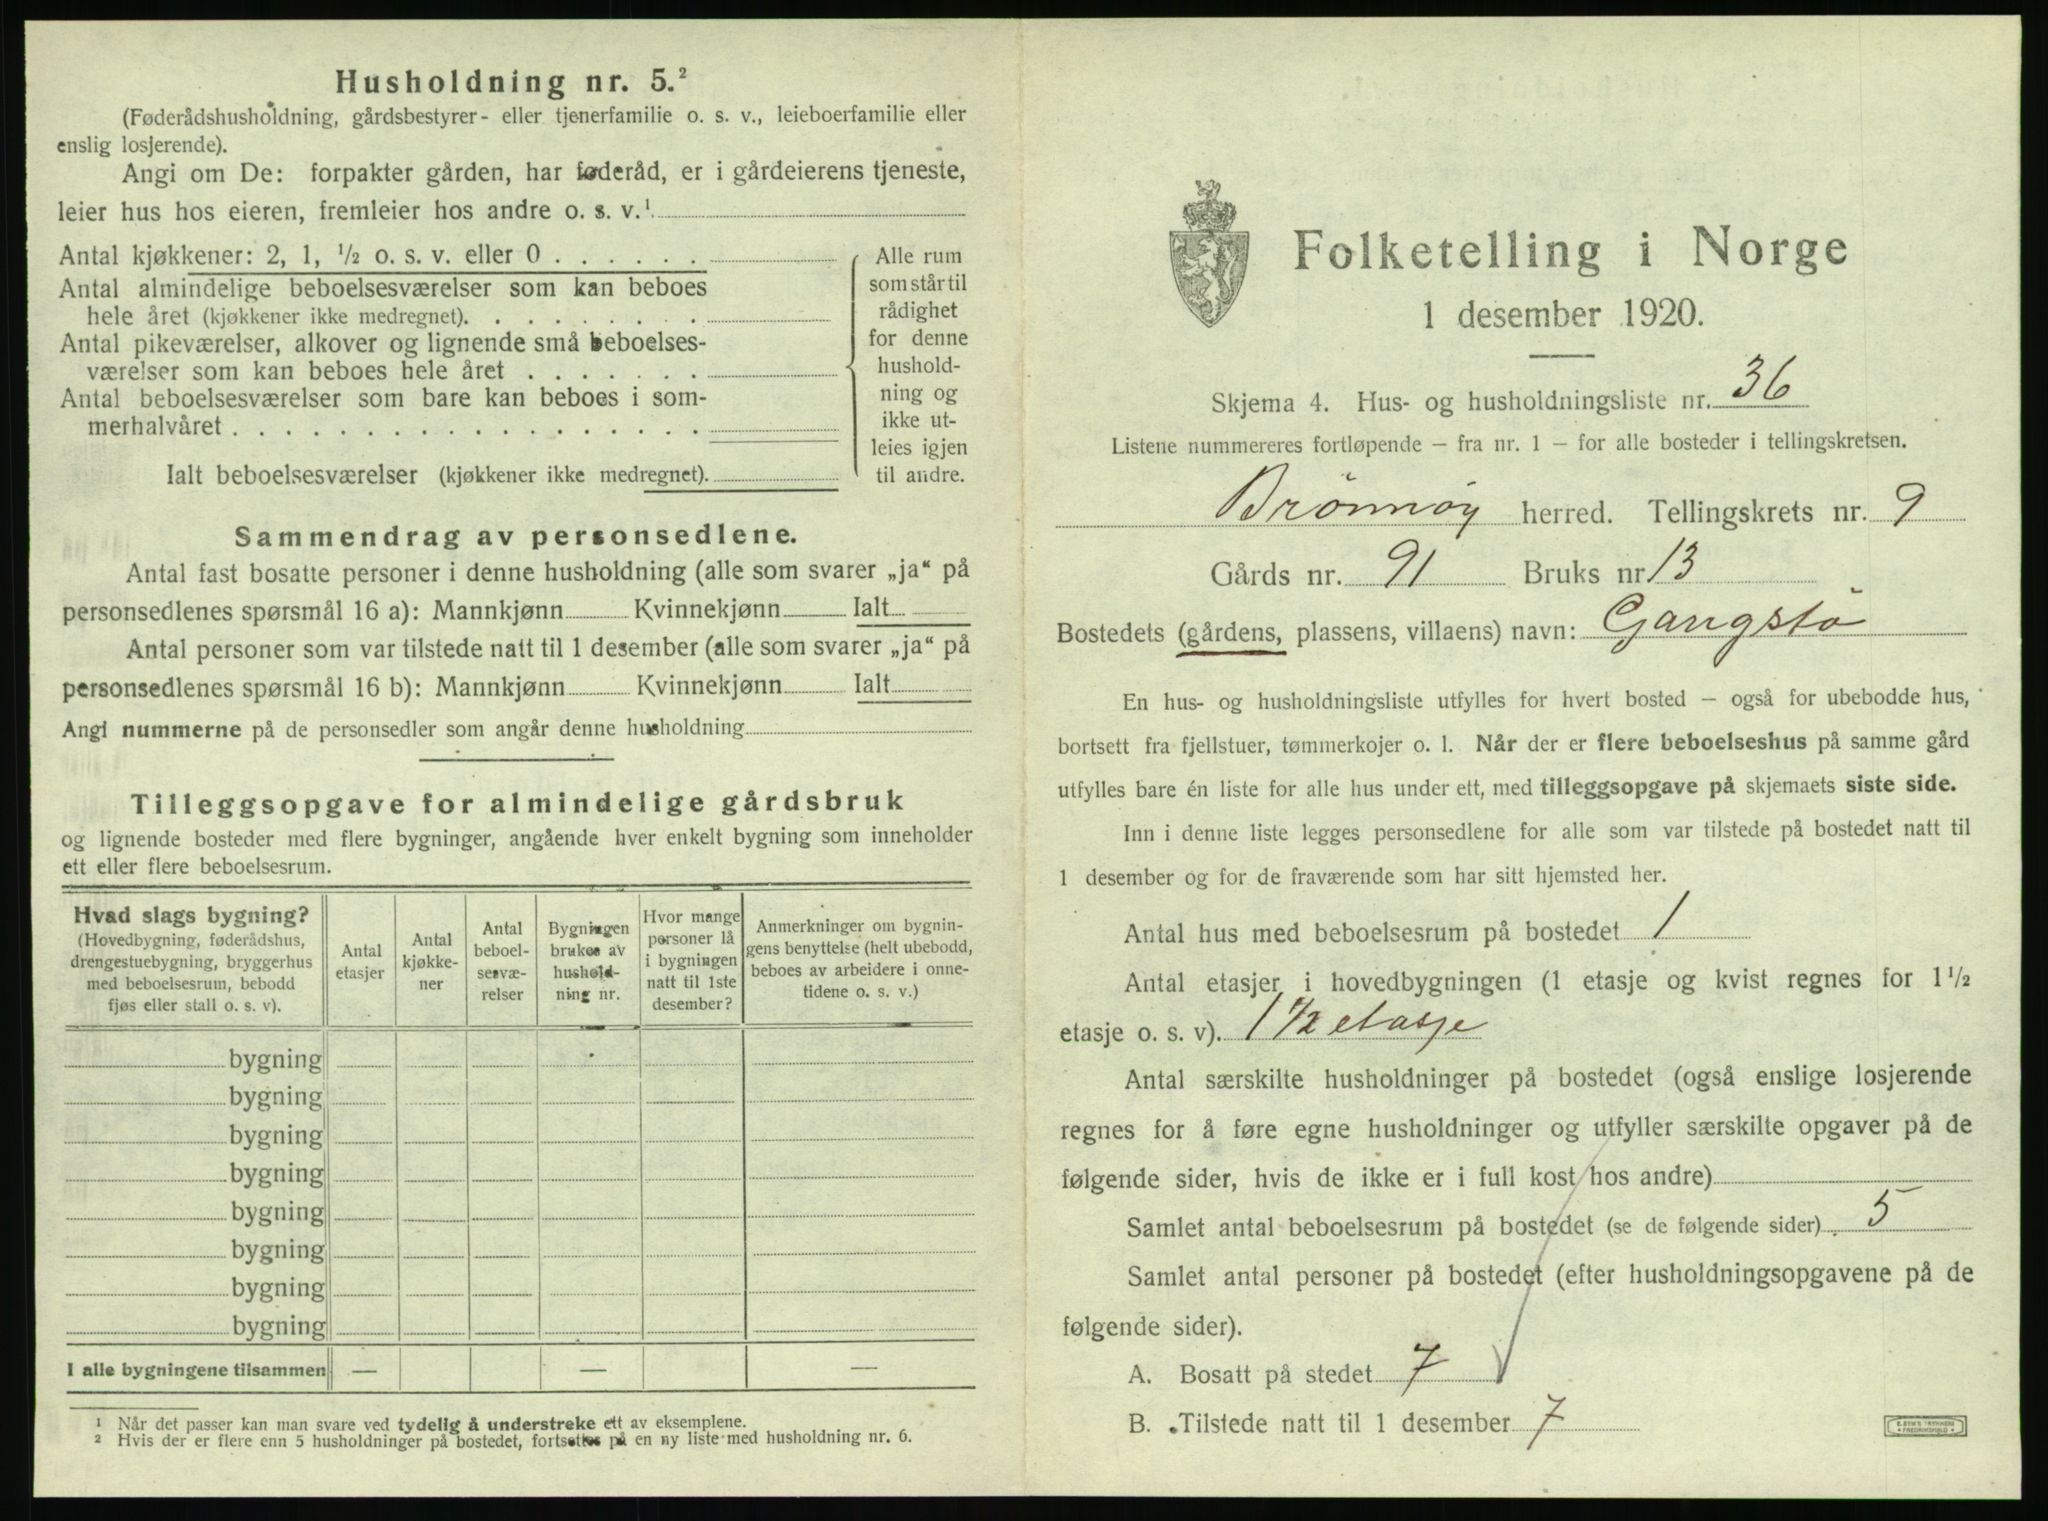 Husholdning nr. 5.²
(Føderådshusholdning, gårdsbestyrer- eller tjenerfamilie o. s. v., leieboerfamilie eller
enslig losjerende).
Angi om De: forpakter gården, har føderåd, er i gårdeierens tjeneste,
leier hus hos eieren, fremleier hos andre o. s. v.¹
Antal kjøkkener: 2, 1, ½ o. s. v. eller 0
Antal almindelige beboelsesværelser som kan beboes
hele året (kjøkkener ikke medregnet).
Antal pikeværelser, alkover og lignende små beboelses-
værelser som kan beboes hele året
Antal beboelsesværelser som bare kan beboes i som-
merhalvåret
Ialt beboelsesværelser (kjøkkener ikke medregnet).
Alle rum
som står til
rådighet
for denne
hushold-
ning og
ikke ut-
leies igjen
til andre.
Sammendrag av personsedlene.
Antal fast bosatte personer i denne husholdning (alle som svarer „ja“ på
personsedlenes spørsmål 16 a): Mannkjønn Kvinnekjønn Ialt
Antal personer som var tilstede natt til 1 desember (alle som svarer „ja“ på
personsedlenes spørsmål 16 b): Mannkjønn Kvinnekjønn Ialt
Angi nummerne på de personsedler som angår denne husholdning
Tilleggsopgave for almindelige gårdsbruk
og lignende bosteder med flere bygninger, angående hver enkelt bygning som inneholder
ett eller flere beboelsesrum.
Hvad slags bygning?
(Hovedbygning, føderådshus,
drengestuebygning, bryggerhus
med beboelsesrum, bebodd
fjøs eller stall o. s. v).
Antal
etasjer
Antal
kjøkke-
ner
Antal
beboel-
sesvæ-
relser
Bygningen
brukes av
hushold-
ning nr.
Hvor mange
personer lå
i bygningen
natt til 1ste
desember?
Anmerkninger om bygnin-
gens benyttelse (helt ubebodd,
beboes av arbeidere i onne-
tidene o. s. v.)
bygning
bygning
bygning
bygning
bygning
bygning
bygning
bygning
I alle bygningene tilsammen — — —
¹ Når det passer kan man svare ved tydelig å understreke ett av eksemplene.
² Hvis der er flere enn 5 husholdninger på bostedet, fortsettes på en ny liste med husholdning nr. 6.
Folketelling i Norge
1 desember 1920.
Skjema 4. Hus- og husholdningsliste nr. 36
Listene nummereres fortløpende – fra nr. 1 – for alle bosteder i tellingskretsen.
Brönnöy herred. Tellingskrets nr. 9
Gårds nr. 91 Bruks nr 13
Bostedets (gårdens, plassens, villaens) navn: Gangstö
En hus- og husholdningsliste utfylles for hvert bosted – også for ubebodde hus,
bortsett fra fjellstuer, tømmerkojer o. l. Når der er flere beboelseshus på samme gård
utfylles bare én liste for alle hus under ett, med tilleggsopgave på skjemaets siste side.
Inn i denne liste legges personsedlene for alle som var tilstede på bostedet natt til
1 desember og for de fraværende som har sitt hjemsted her.
Antal hus med beboelsesrum på bostedet 1
Antal etasjer i hovedbygningen (1 etasje og kvist regnes for 1½
etasje o. s. v). 1 ½ etasje
Antal særskilte husholdninger på bostedet (også enslige losjerende
regnes for å føre egne husholdninger og utfyller særskilte opgaver på de
følgende sider, hvis de ikke er i full kost hos andre)
Samlet antal beboelsesrum på bostedet (se de følgende sider) 5
Samlet antal personer på bostedet (efter husholdningsopgavene på de
følgende sider).
A. Bosatt på stedet 7
B. Tilstede natt til 1 desember 7